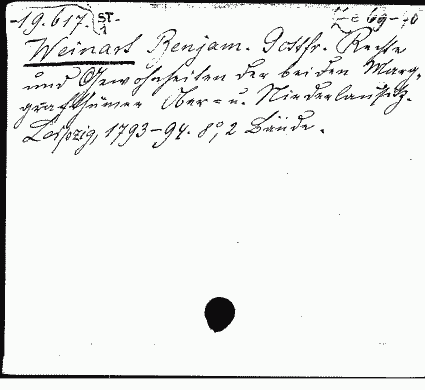 19.617. ST-1
Weinart Benjam. Gottfr. Rechte
und Gewohnheiten der beiden Marg-
grafthümer Ober= u. Niederlausitz.
Leipzig, 1793-94. 8°, 2 Bände.